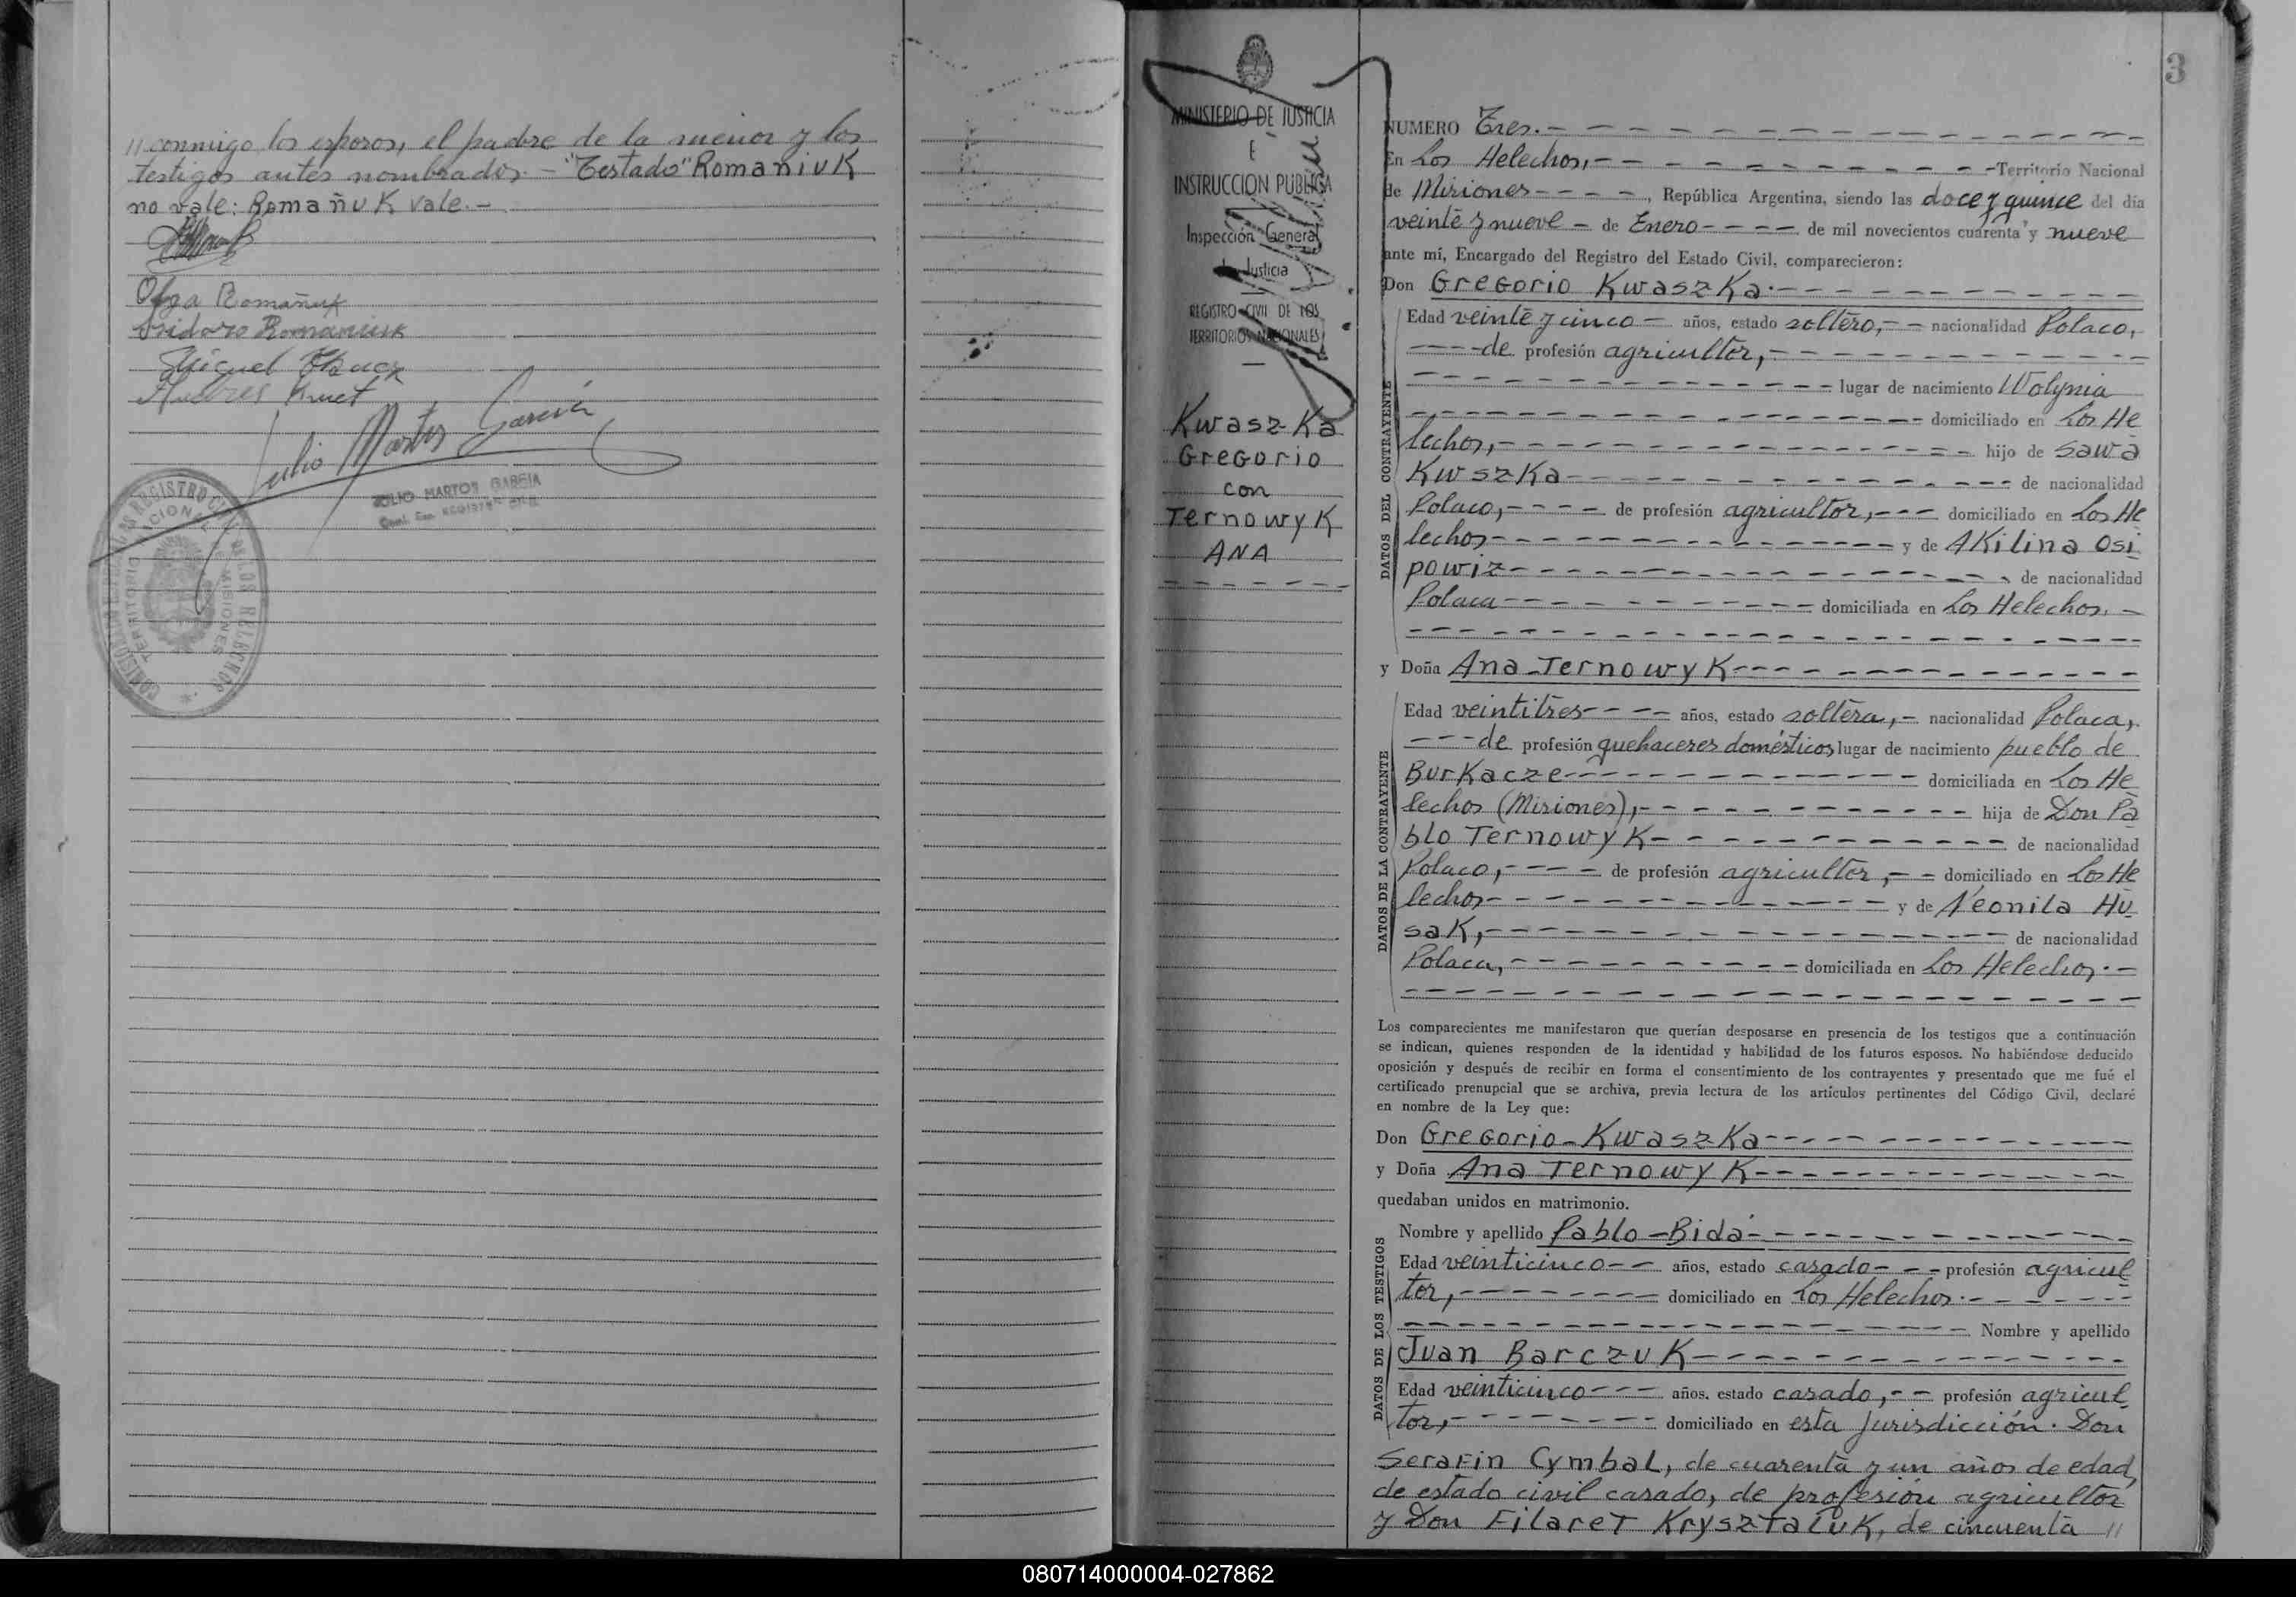 // conmigo los esposos, el padre de la menor y los
testigos antes nombrados. - "Testado" Romaniuk
no vale: Romañuk vale. -
Olga Romañuk
Isidoro Romaniuk
Miguel
Andres Kruet
Julio Martos Garcia
JULIO MARTOS GARCIA
TERRITORIO NACIONAL
MISIONES
3
MINISTERIO DE JUSTICIA
E
INSTRUCCION PUBLICA
Inspección General
de Justicia
REGISTRO CIVIL DE LOS
TERRITORIOS NACIONALES
Kwaszka
Gregorio
con
Ternowyk
ANA
NUMERO Tres. -
En Los Helechos, - Territorio Nacional
de Misiones - , República Argentina, siendo las doce y quince del día
veinte y nueve - de Enero - de mil novecientos cuarenta y nueve
ante mí, Encargado del Registro del Estado Civil, comparecieron:
Don Gregorio Kwaszka. -
DATOS DEL CONTRAYENTE
Edad veinte y cinco - años, estado soltero, - nacionalidad Polaco,
- de profesión agricultor, -
- lugar de nacimiento Wolynia
- domiciliado en Los He
lechos, - hijo de Sawa
Kwszka - de nacionalidad
Polaco, - de profesión agricultor, - domiciliado en Los He
lechos - y de Akilina Osi
powiz - de nacionalidad
Polaca - domiciliada en Los Helechos. -
y Doña Ana Ternowyk -
DATOS DE LA CONTRAYENTE
Edad veintitres - años, estado soltera, - nacionalidad Polaca,
- de profesión quehaceres domésticos lugar de nacimiento pueblo de
Burkacze - domiciliada en Los He
lechos (Misiones), - hija de Don Pa
blo Ternowyk - de nacionalidad
Polaco, - de profesión agricultor, - domiciliado en Los He
lechos - y de Neonila Hu
sak, - de nacionalidad
Polaca, - domiciliada en Los Helechos. -
Los comparecientes me manifestaron que querían desposarse en presencia de los testigos que a continuación
se indican, quienes responden de la identidad y habilidad de los futuros esposos. No habiéndose deducido
oposición y después de recibir en forma el consentimiento de los contrayentes y presentado que me fué el
certificado prenupcial que se archiva, previa lectura de los artículos pertinentes del Código Civil, declaré
en nombre de la Ley que:
Don Gregorio - Kwaszka -
y Doña Ana Ternowyk -
quedaban unidos en matrimonio.
DATOS DE LOS TESTIGOS
Nombre y apellido Pablo - Bida -
Edad veinticinco - años, estado casado - profesión agricul
tor, - domiciliado en Los Helechos. -
- Nombre y apellido
Juan Barczuk -
Edad veinticinco - años, estado casado, - profesión agricul
tor, - domiciliado en esta Jurisdicción. Don
Serafin Cymbal, de cuarenta y un años de edad,
de estado civil casado, de profesión agricultor
y Don Filaret Krysztaluk, de cincuenta //
080714000004-027862